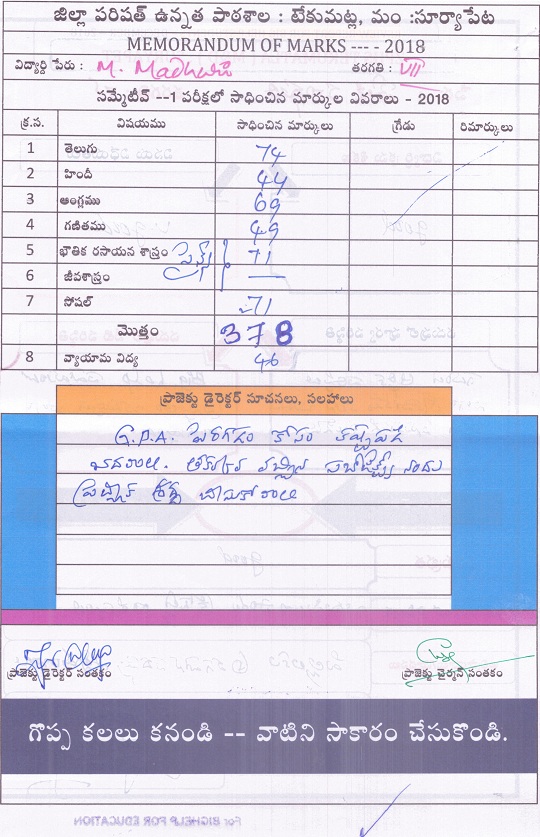 జిల్లా పరిషత్ ఉన్నత పాఠశాల : టేకుమట్ల, మం :సూర్యాపేట
MEMORANDUM OF MARKS ---- 2018
విద్యార్థి పేరు : M. Madhavi తరగతి : VII
సమ్మేటీవ్ --1 పరీక్షలో సాధించిన మార్కుల వివరాలు - 2018
క్ర.స. విషయము సాధించిన మార్కులు గ్రేడు రిమార్కులు
1 తెలుగు 74
2 హిందీ 44
3 ఆంగ్లము 69
4 గణితము 49
5 భౌతిక రసాయన శాస్త్రం సైన్స్ 71
6 జీవశాస్త్రం —
7 సోషల్ 71
మొత్తం 378
8 వ్యాయామ విద్య 46
ప్రాజెక్టు డైరెక్టర్ సూచనలు, సలహాలు
G.P.A. పెరగడం కోసం కష్టపడి
చదవాలి. తక్కువ వచ్చిన సబ్జెక్ట్స్ నందు
శ్రద్ధ చూపుకోవాలి
ప్రాజెక్టు డైరెక్టర్ సంతకం ప్రాజెక్టు చైర్మన్ సంతకం
గొప్ప కలలు కనండి -- వాటిని సాకారం చేసుకొండి.
For BIGHELP FOR EDUCATION